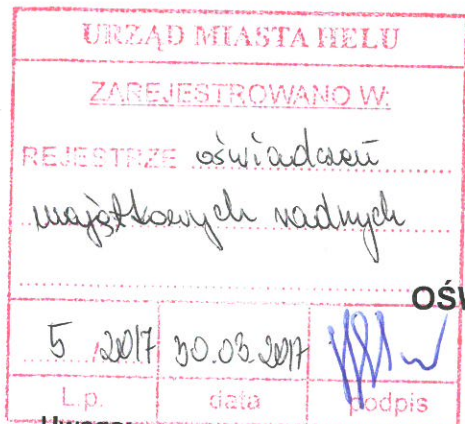 URZĄD MIASTA HELU
ZAREJESTROWANO W:
REJESTRZE oświadczeń
majątkowych radnych
OŚW
5 /2017 30.03.2017
L.p. data podpis
Uwaga: